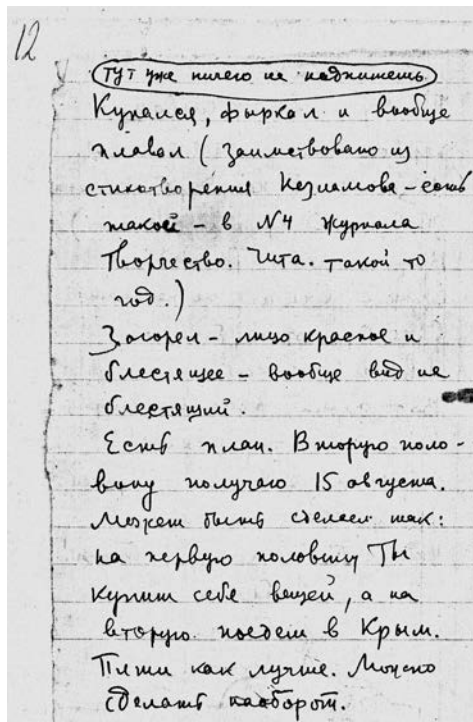 12
тут уже ничего не попишешь
Купался, фыркал и вообще
плавал (заимствовано из
стихотворения Незнамова – есть
такой – в №4 журнала
Творчество. Чита. такой то
год.)
Загорел – лицо красное и
блестящее – вообще вид не
блестящий.
Есть план. Вторую поло-
вину получаю 15 августа.
Может быть сделаем так:
на первую половину Ты
купиш себе вещей, а на
вторую поедем в Крым.
Пиши как лучше. Можно
сделать наоборот.